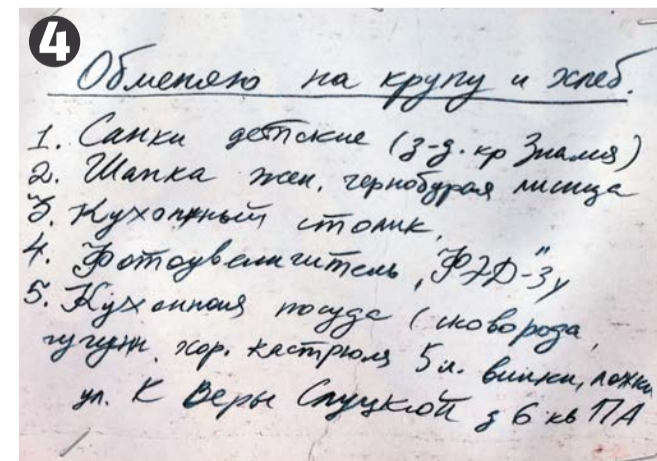 4
Обменяю на крупу и хлеб.
1. Санки детские (з-д. кр Знамя)
2. Шапка жен. чернобурая лисица
3. Кухонный столик,
4. Фотоувеличитель „ФЭД-3"
5. Кухонная посуда (сковорода,
чугунн. хор. кастрюля 5 л. вилки, ложки
ул. К Веры Слуцкой д 6 кв